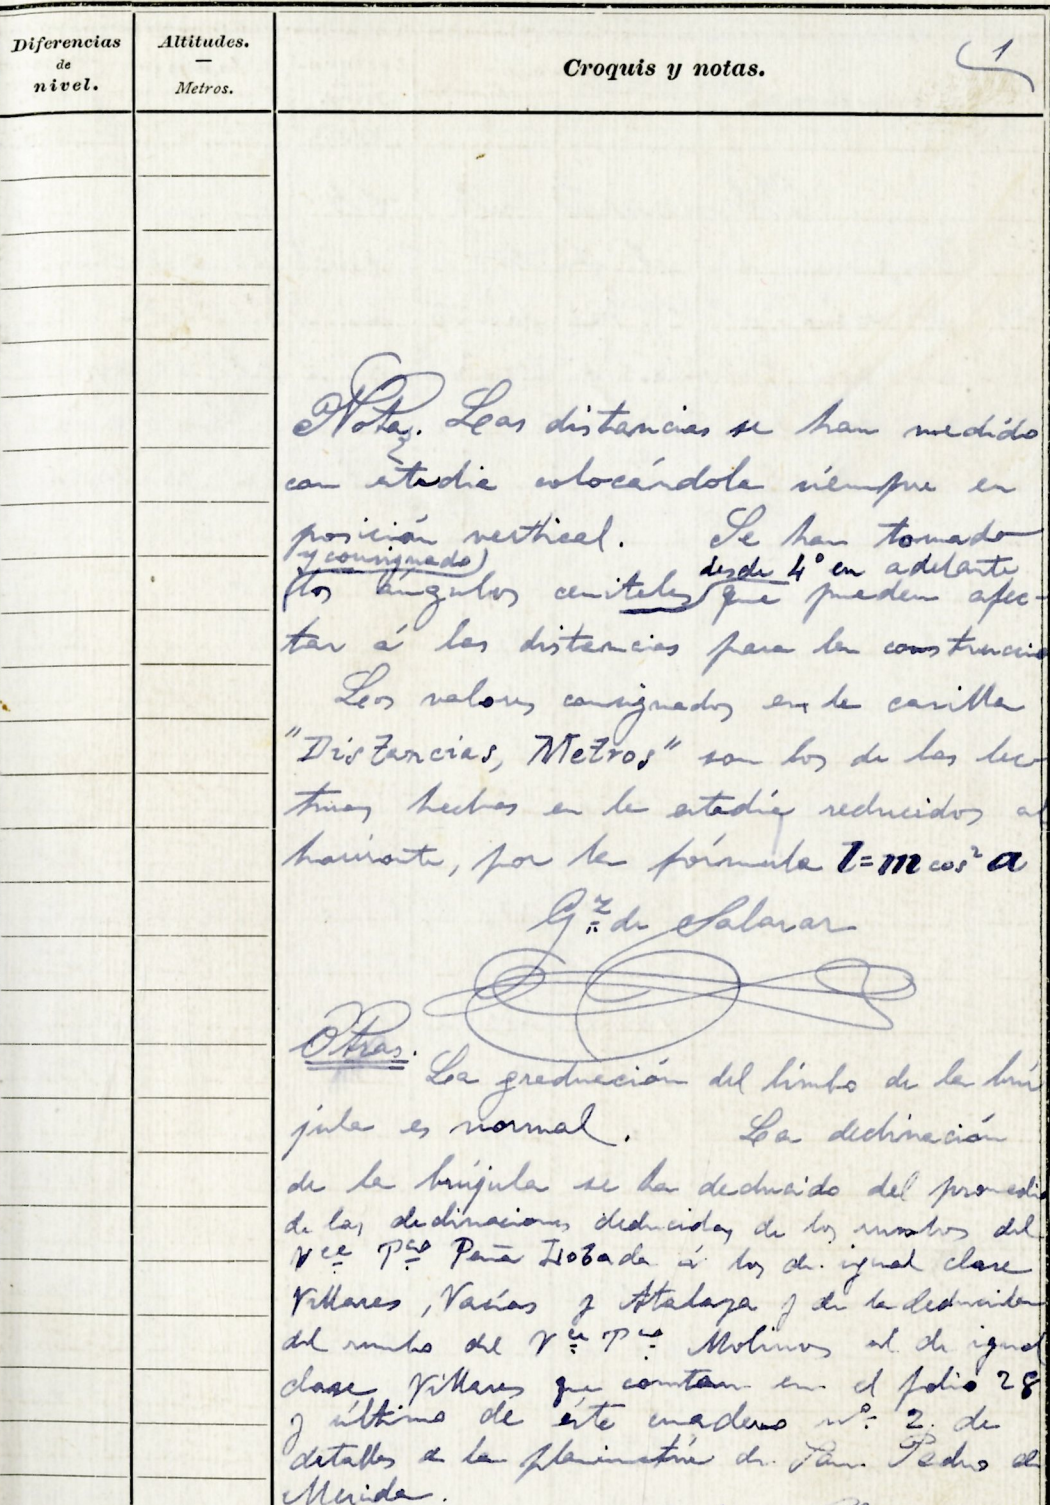 Diferencias
de
nivel.
Altitudes.
Metros.
Croquis y notas.
1
Nota. Las distancias se han medido
con estadia colocándola siémpre en
posición vertical. Se han tomado
y consignado desde 4° en adelante
los ángulos cenitales que pueden afec-
tar á las distancias para la construccio
Los valores consignados en la casilla
"Distancias, Metros" son los de las lec-
turas hechas en la estadía reducidos al
horizonte, por la fórmula l=m cos² a
G.z de Salazar
Otras.
La graduación del limbo de la brú
jula es normal. La declinación
de la brújula se ha deducido del promedio
de las declinaciones deducidas de los rumbos del
Vce Tco Peña Horada á los de igual clase
Villares, Vacías y Atalaya y de la deducida
del rumbo del Vce Tco Molinos al de igual
clase Villares que constan en el folio 28
y último de éste cuaderno nº 2 de
detalles de la planimetría de San Pedro de
Merida.